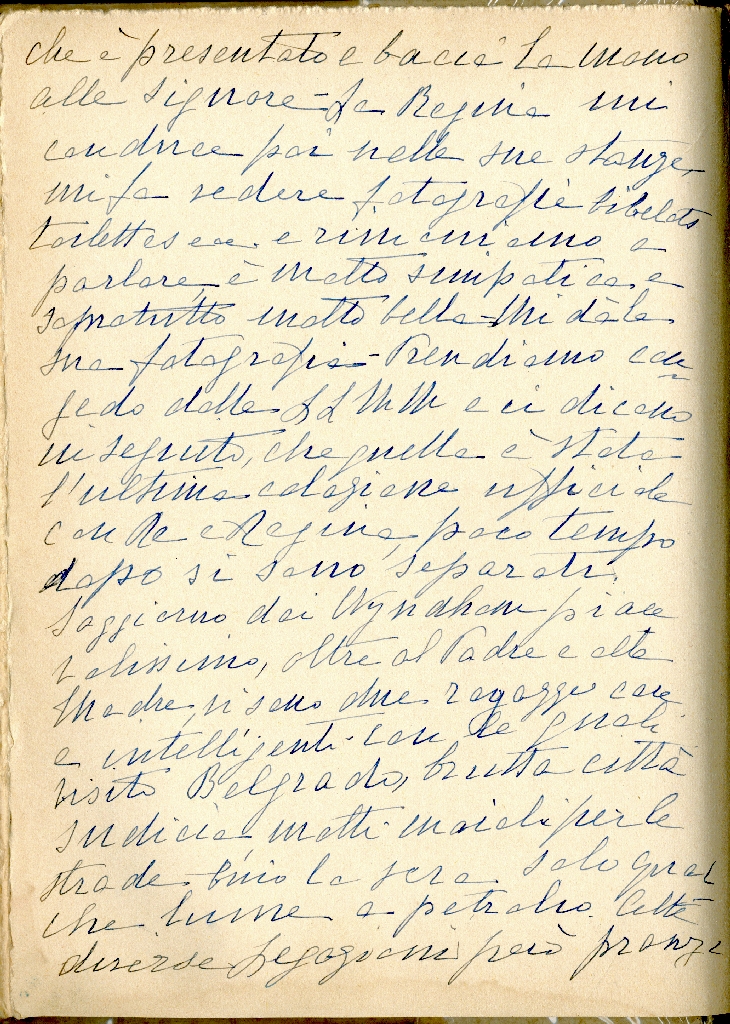 che è presentato e bacia la mano
alle signore - La Regina mi
conduce poi nelle sue stanze,
mi fa vedere fotografie bibelots
toilettes ecc. e rimaniamo a
parlare, è molto simpatica e
sopratutto molto bella - Mi dà la
sua fotografia - Prendiamo con=
gedo dalle LL MM e ci dicono
in seguito, che quella è stata
l'ultima colazione ufficiale
con Re e Regina, poco tempo
dopo si sono separati.
Soggiorno dai Wyndham piace
volissimo, oltre al Padre e alla
Madre, vi sono due ragazze care
e intelligenti con le quali
visito Belgrado, brutta città
sudicia, molti maiali per le
strade. buio la sera solo qual
che lume a petrolio.
diverse Legazioni però pranzi